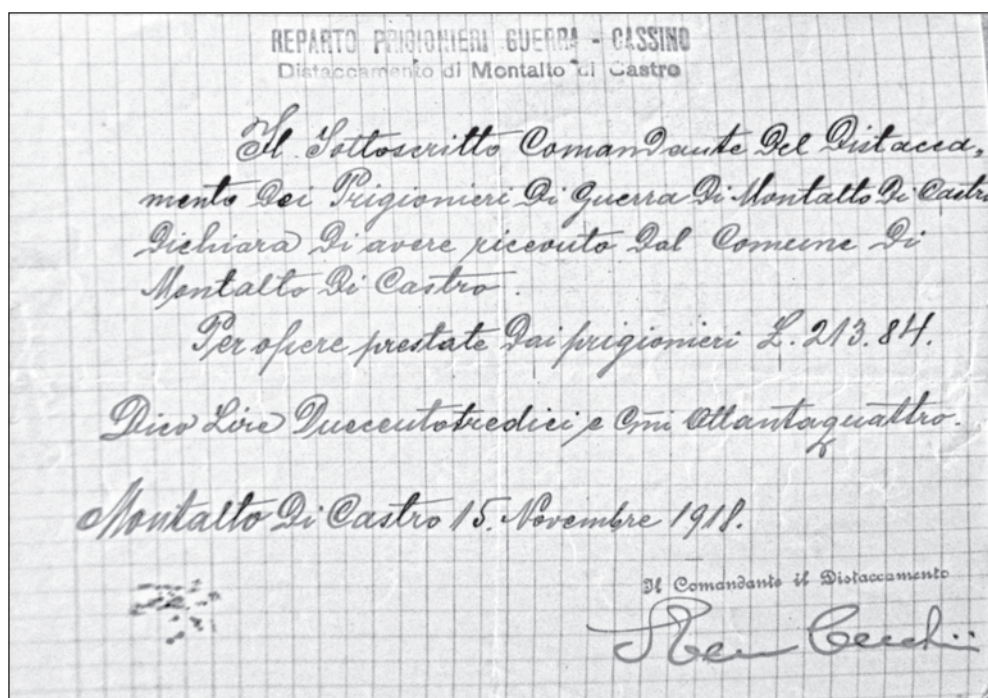 REPARTO PRIGIONIERI GUERRA - CASSINO
Distaccamento di Montalto di Castro
Il Sottoscritto Comandante Del Distacca,
mento Dei Prigionieri Di Guerra Di Montalto Di Castro
Dichiara Di avere ricevuto Dal Comune Di
Montalto Di Castro.
Per opere prestate Dai prigionieri L. 213.84.
Dico Lire Duecentotredici e Cmi Ottantaquattro.
Montalto Di Castro 15. Novembre 1918.
Il Comandante il Distaccamento
Cecchi